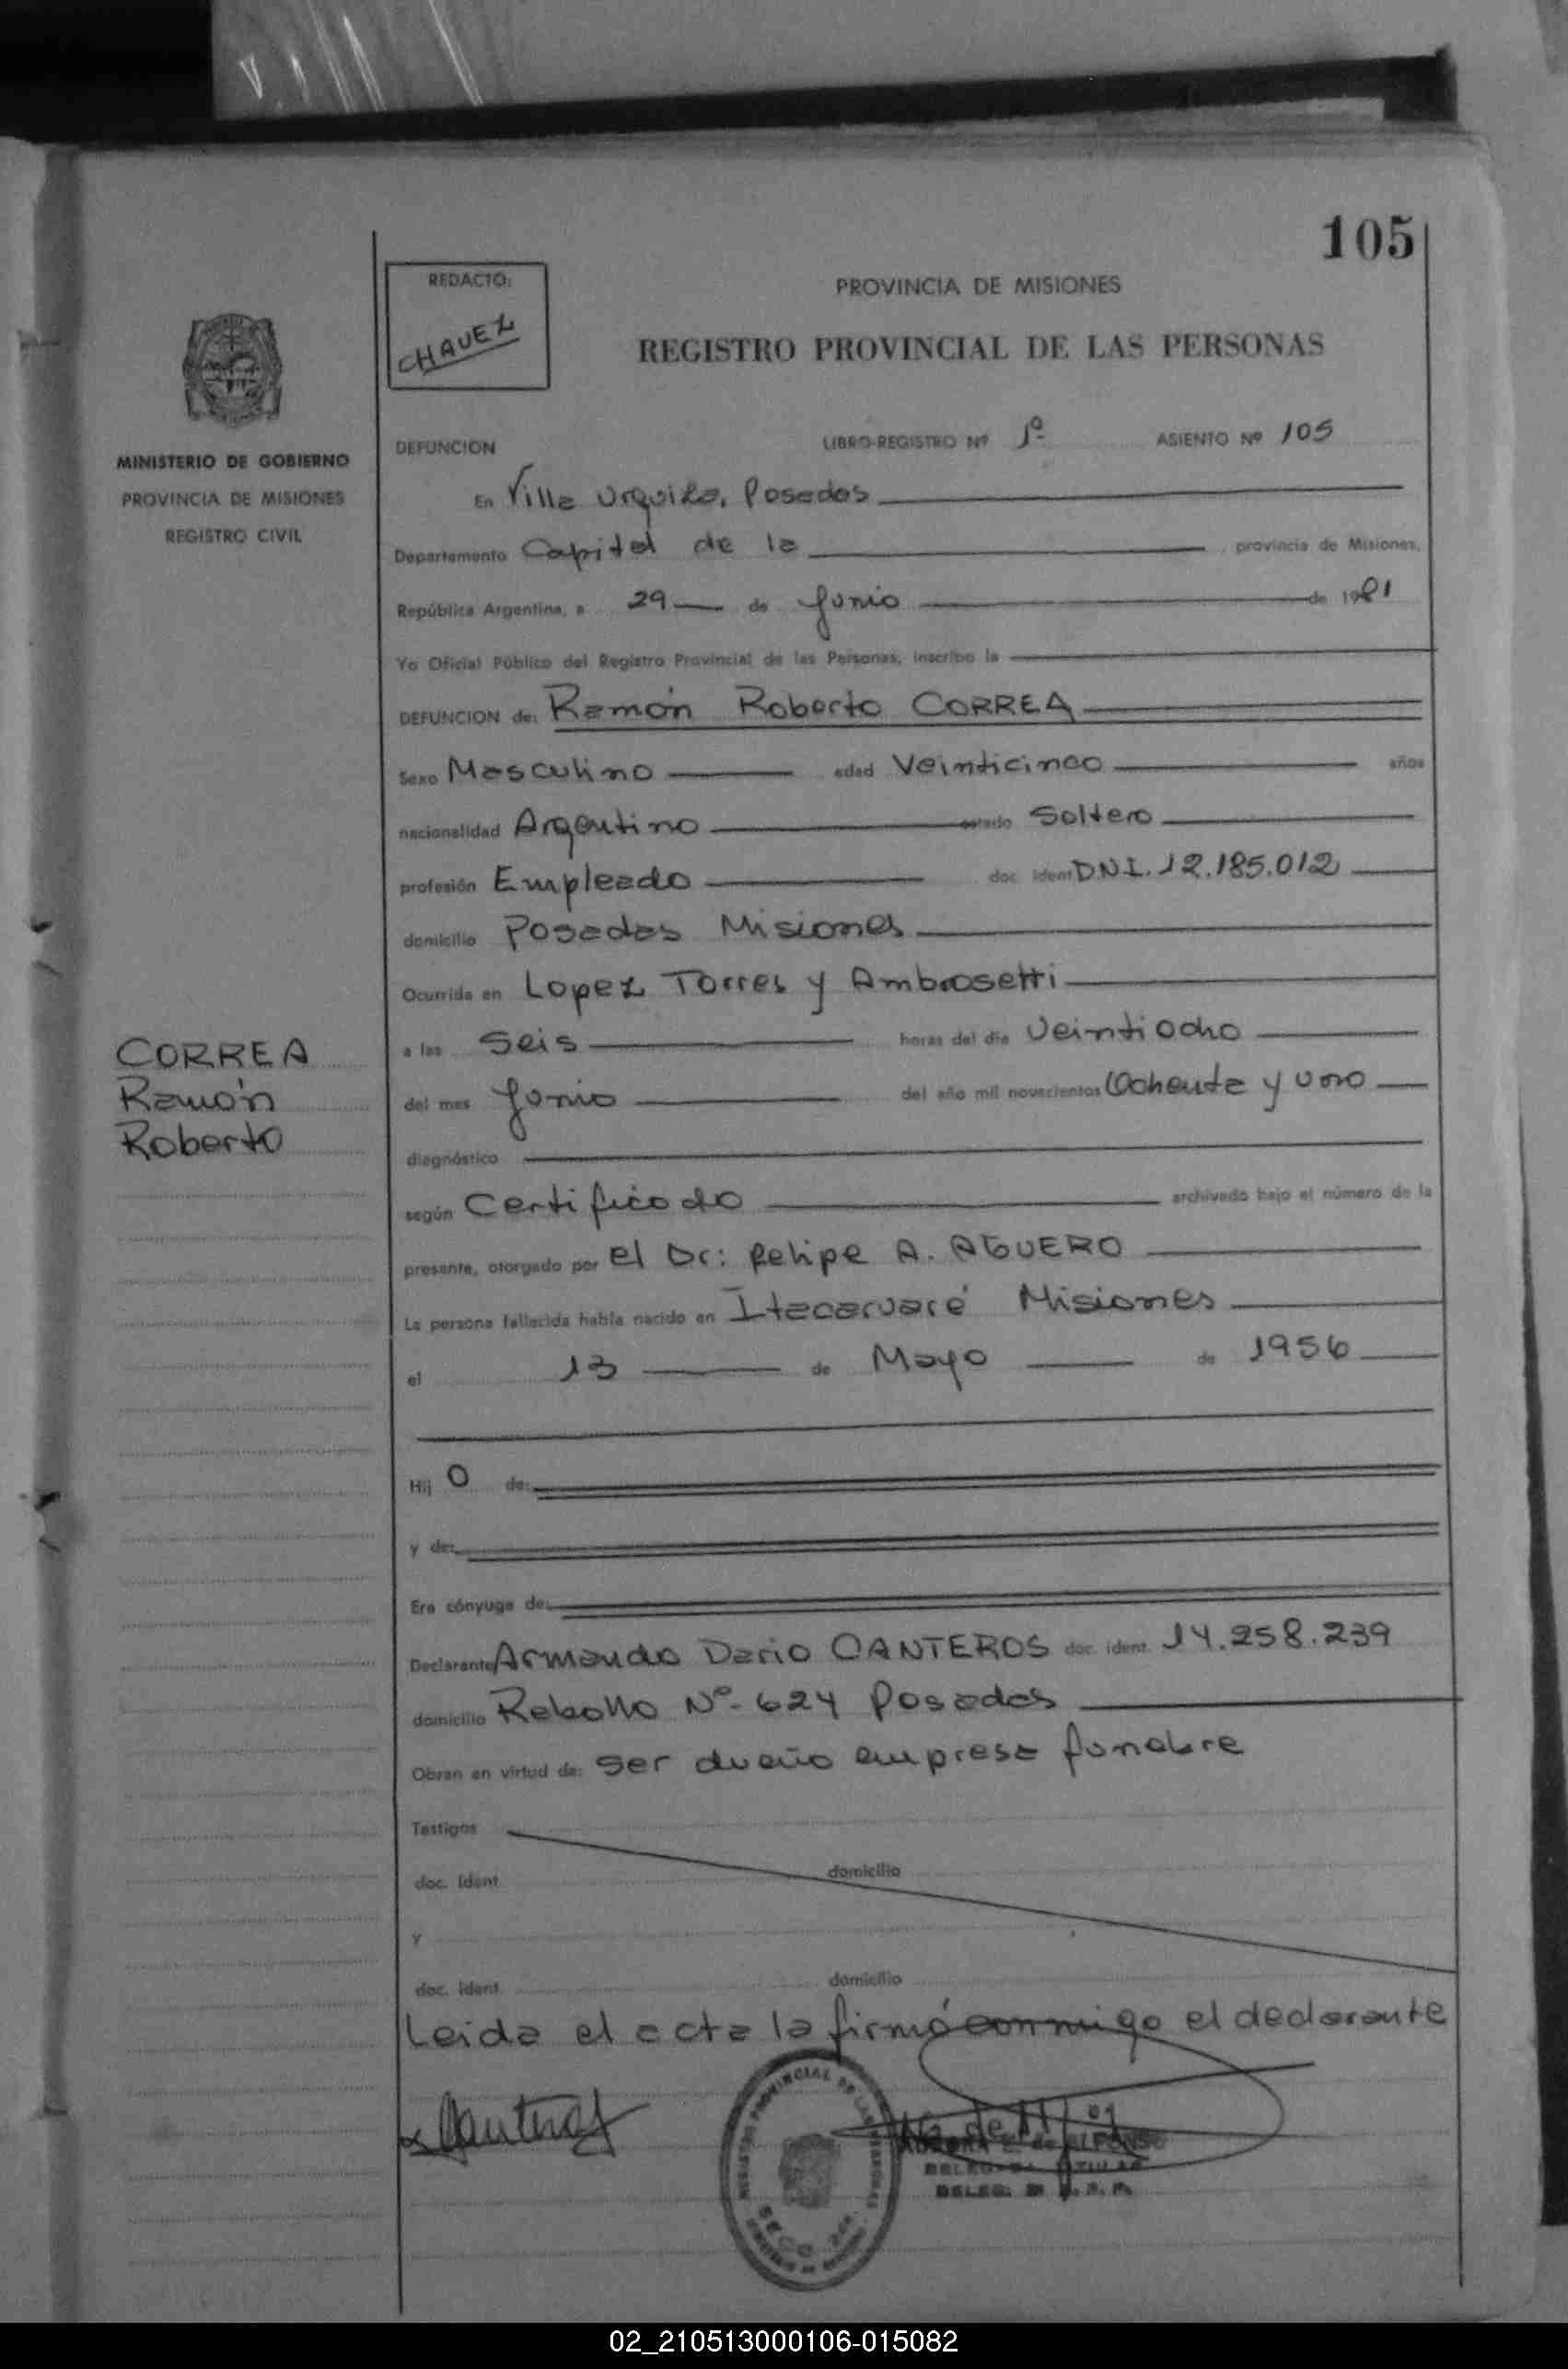 105
REDACTO:
CHAVEZ
PROVINCIA DE MISIONES
REGISTRO PROVINCIAL DE LAS PERSONAS
MINISTERIO DE GOBIERNO
PROVINCIA DE MISIONES
REGISTRO CIVIL
DEFUNCION LIBRO-REGISTRO Nº 1º ASIENTO Nº 105
En Villa Urquiza, Posadas
Departamento Capital de la provincia de Misiones,
República Argentina, a 29 de Junio de 1981
Yo Oficial Público del Registro Provincial de las Personas, inscribo la
DEFUNCION de: Ramón Roberto CORREA
Sexo Masculino edad Veinticinco años
nacionalidad Argentino estado Soltero
profesión Empleado doc. ident DNI. 12.185.012
domicilio Posadas Misiones
Ocurrida en Lopez Torres y Ambrosetti
a las Seis horas del día Veintiocho
del mes Junio del año mil novecientos Ochenta y uno
CORREA
Ramón
Roberto
diagnóstico
según Certificado archivado bajo el número de la
presente, otorgado por el Dr: Felipe A. AGUERO
La persona fallecida había nacido en Itacaruaré Misiones
el 13 de Mayo de 1956
Hij O de:
y de:
Era cónyuge de:
Declarante Armando Dario CANTEROS doc. ident. 14.258.239
domicilio Rebollo Nº- 624 Posadas
Obran en virtud de: Ser dueño empresa funebre
Testigos
doc. ident. domicilio
y
doc. ident. domicilio
Leida el acta la firmó conmigo el declarante
REGISTRO PROVINCIAL DE LAS PERSONAS
de ALFONSO
TITULAR
02_210513000106-015082